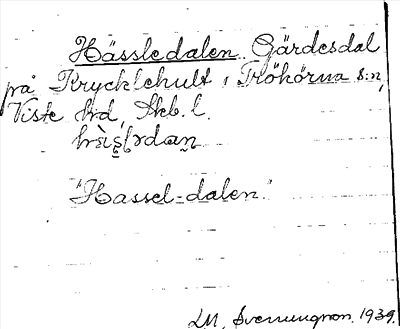 Hässledalen Gärdesdal
på Krycklehult i Flökörna s:n,
Viste hrd, Skb. l.
"Hassel-dalen."
LM, Svenungson. 1939.